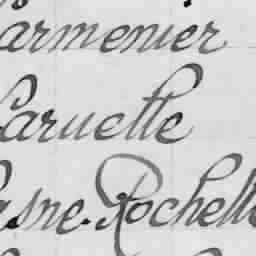 Larmenier
Laruelle
Lasne-Rochelle